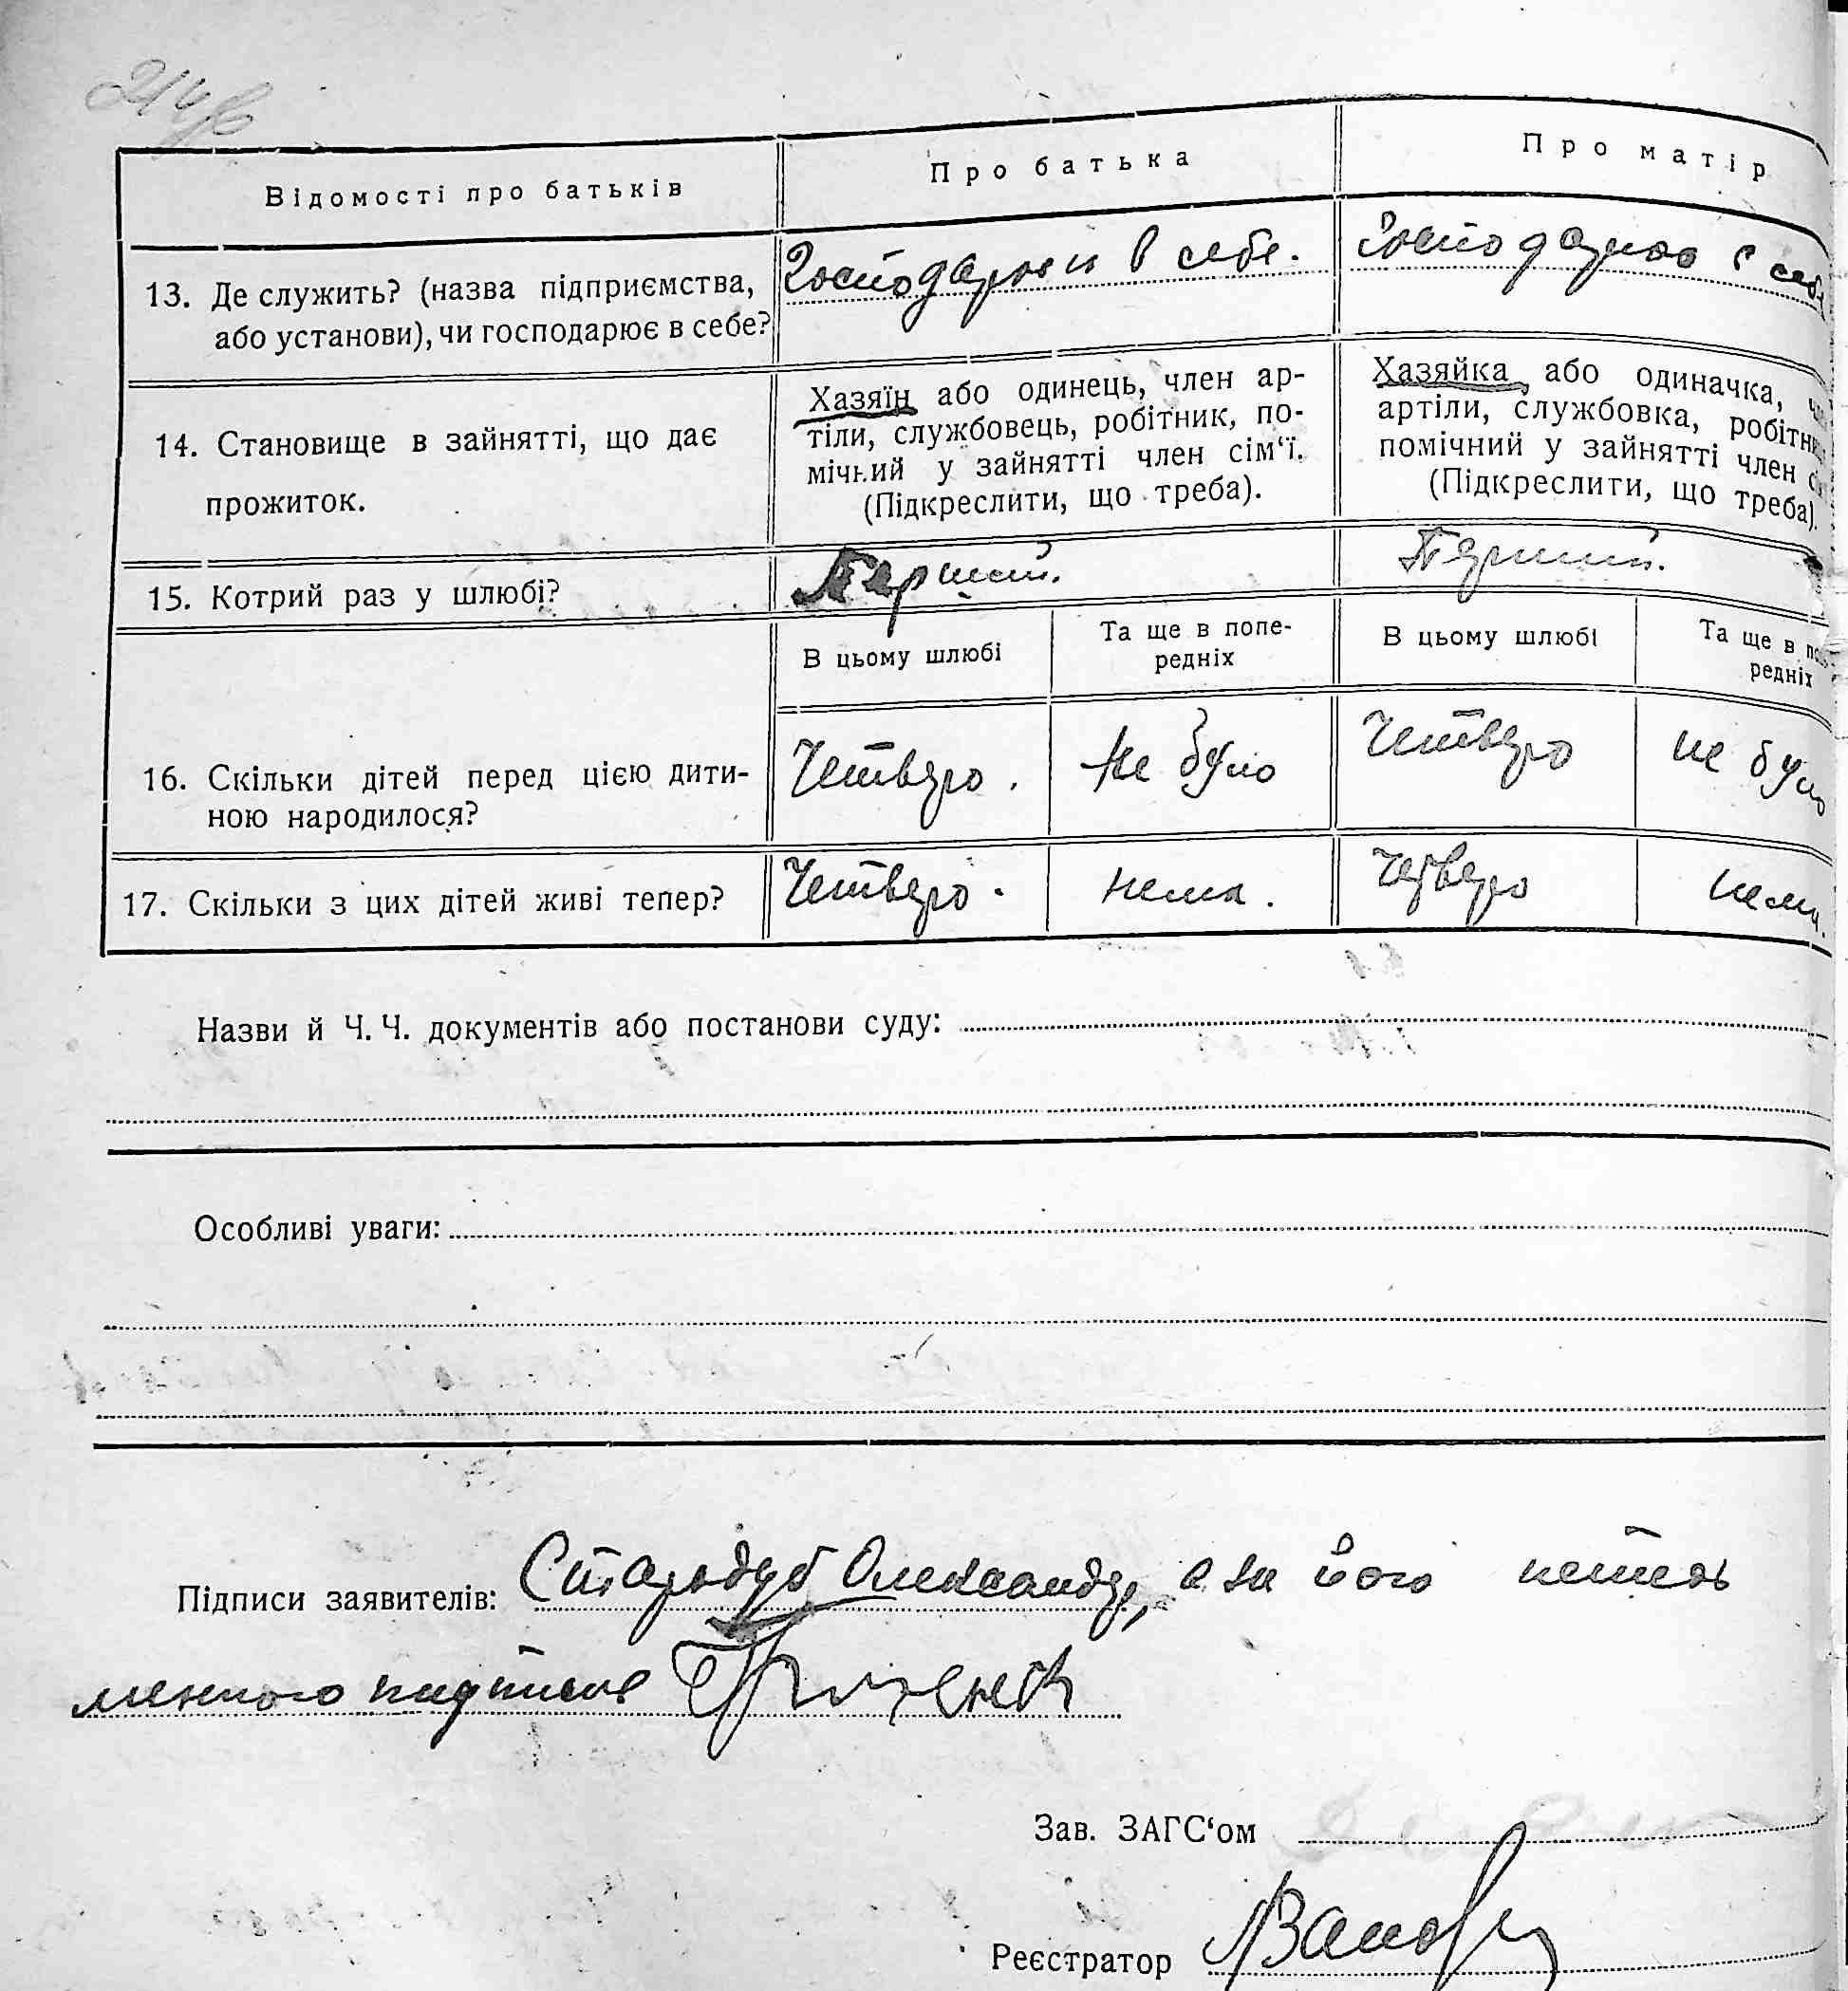 Відомості про батьків
Про батька
Про матір
13. Де служить? (назва підприємства,
або установи), чи господарює в себе?
Господарює в себе.
Господарює в себе
14. Становище в зайнятті, що дає
прожиток.
Хазяїн або одинець, член ар-
тіли, службовець, робітник, по-
мічний у зайнятті член сім'ї.
(Підкреслити, що треба).
Хазяйка або одиначка,
артіли, службовка,
помічний у зайнятті член
(Підкреслити, що треба).
15. Котрий раз у шлюбі?
Перший.
Перший.
В цьому шлюбі
Та ще в попе-
редніх
В цьому шлюбі
Та ще в
редніх
16. Скільки дітей перед цією дити-
ною народилося?
Четверо.
Не було
Четверо
не було
17. Скільки з цих дітей живі тепер?
Четверо.
нема.
Четверо
нема.
Назви й Ч. Ч. документів або постанови суду:
Особливі уваги:
Підписи заявителів: Стародуб Олександр, а за його
Зав. ЗАГС'ом
Реєстратор